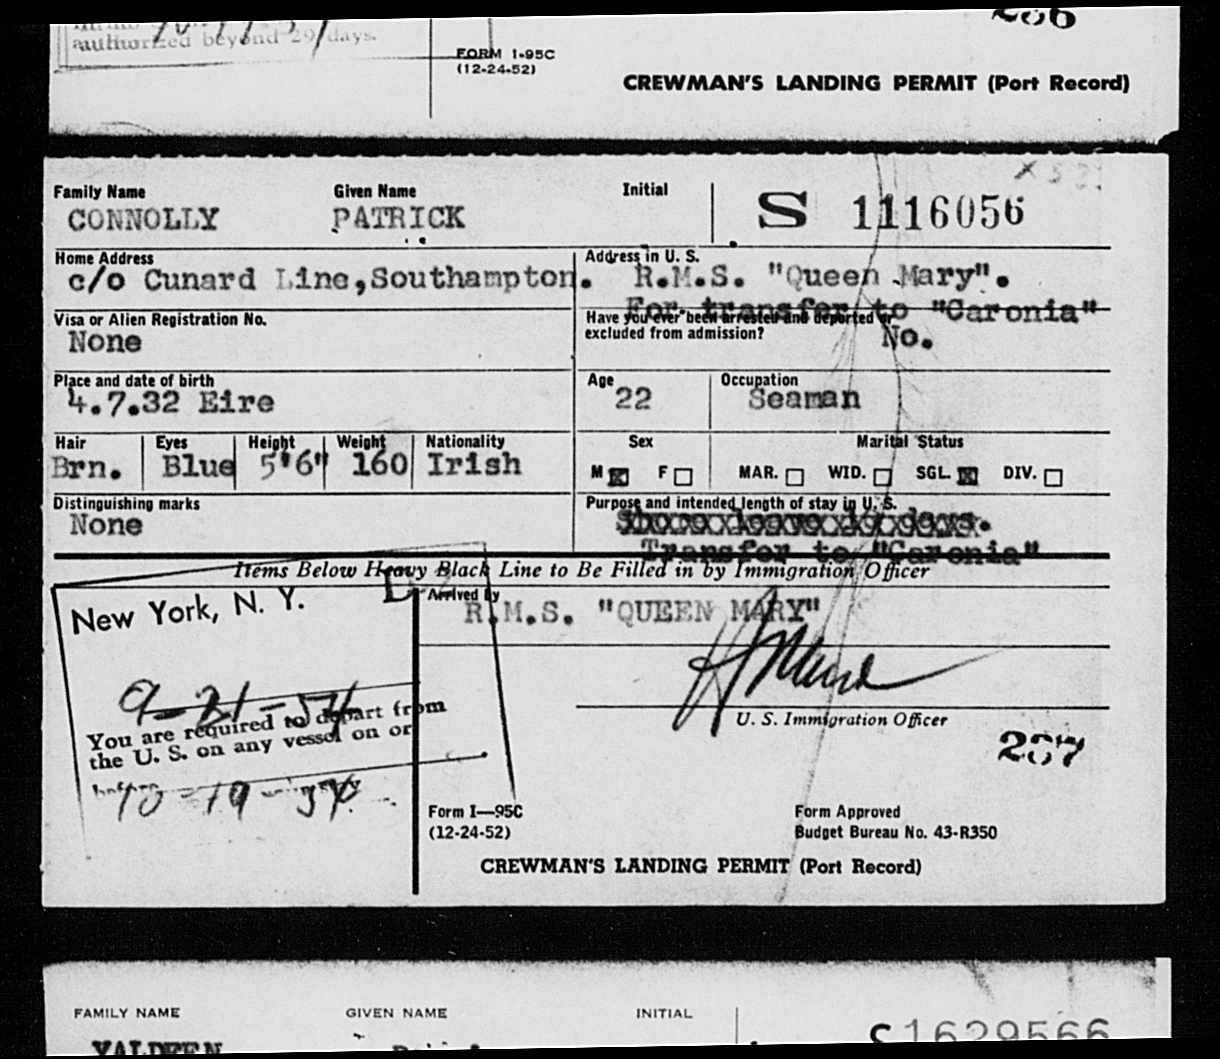 authorized beyond 29 days.
FORM I-95C
(12-24-52)
CREWMAN'S LANDING PERMIT (Port Record)
Family Name Given Name Initial
CONNOLLY PATRICK S 1116056
Home Address Address in U. S.
c/o Cunard Line,Southampton. R.M.S. "Queen Mary".
For transfer to "Caronia"
Visa or Alien Registration No. Have you ever been arrested and deported or
excluded from admission?
None No.
Place and date of birth Age Occupation
4.7.32 Eire 22 Seaman
Hair Eyes Height Weight Nationality Sex Marital Status
Brn. Blue 5'6" 160 Irish M F MAR. WID. SGL. DIV.
Distinguishing marks Purpose and intended length of stay in U. S.
None
Transfer to "Caronia"
Items Below Heavy Black Line to Be Filled in by Immigration Officer
New York, N. Y.
Arrived by
R.M.S. "QUEEN MARY"
9-21-54
You are required to depart from
the U. S. on any vessel on or
before
10-19-54
U. S. Immigration Officer
257
Form I—95C Form Approved
(12-24-52) Budget Bureau No. 43-R350
CREWMAN'S LANDING PERMIT (Port Record)
FAMILY NAME GIVEN NAME INITIAL
S 1629566